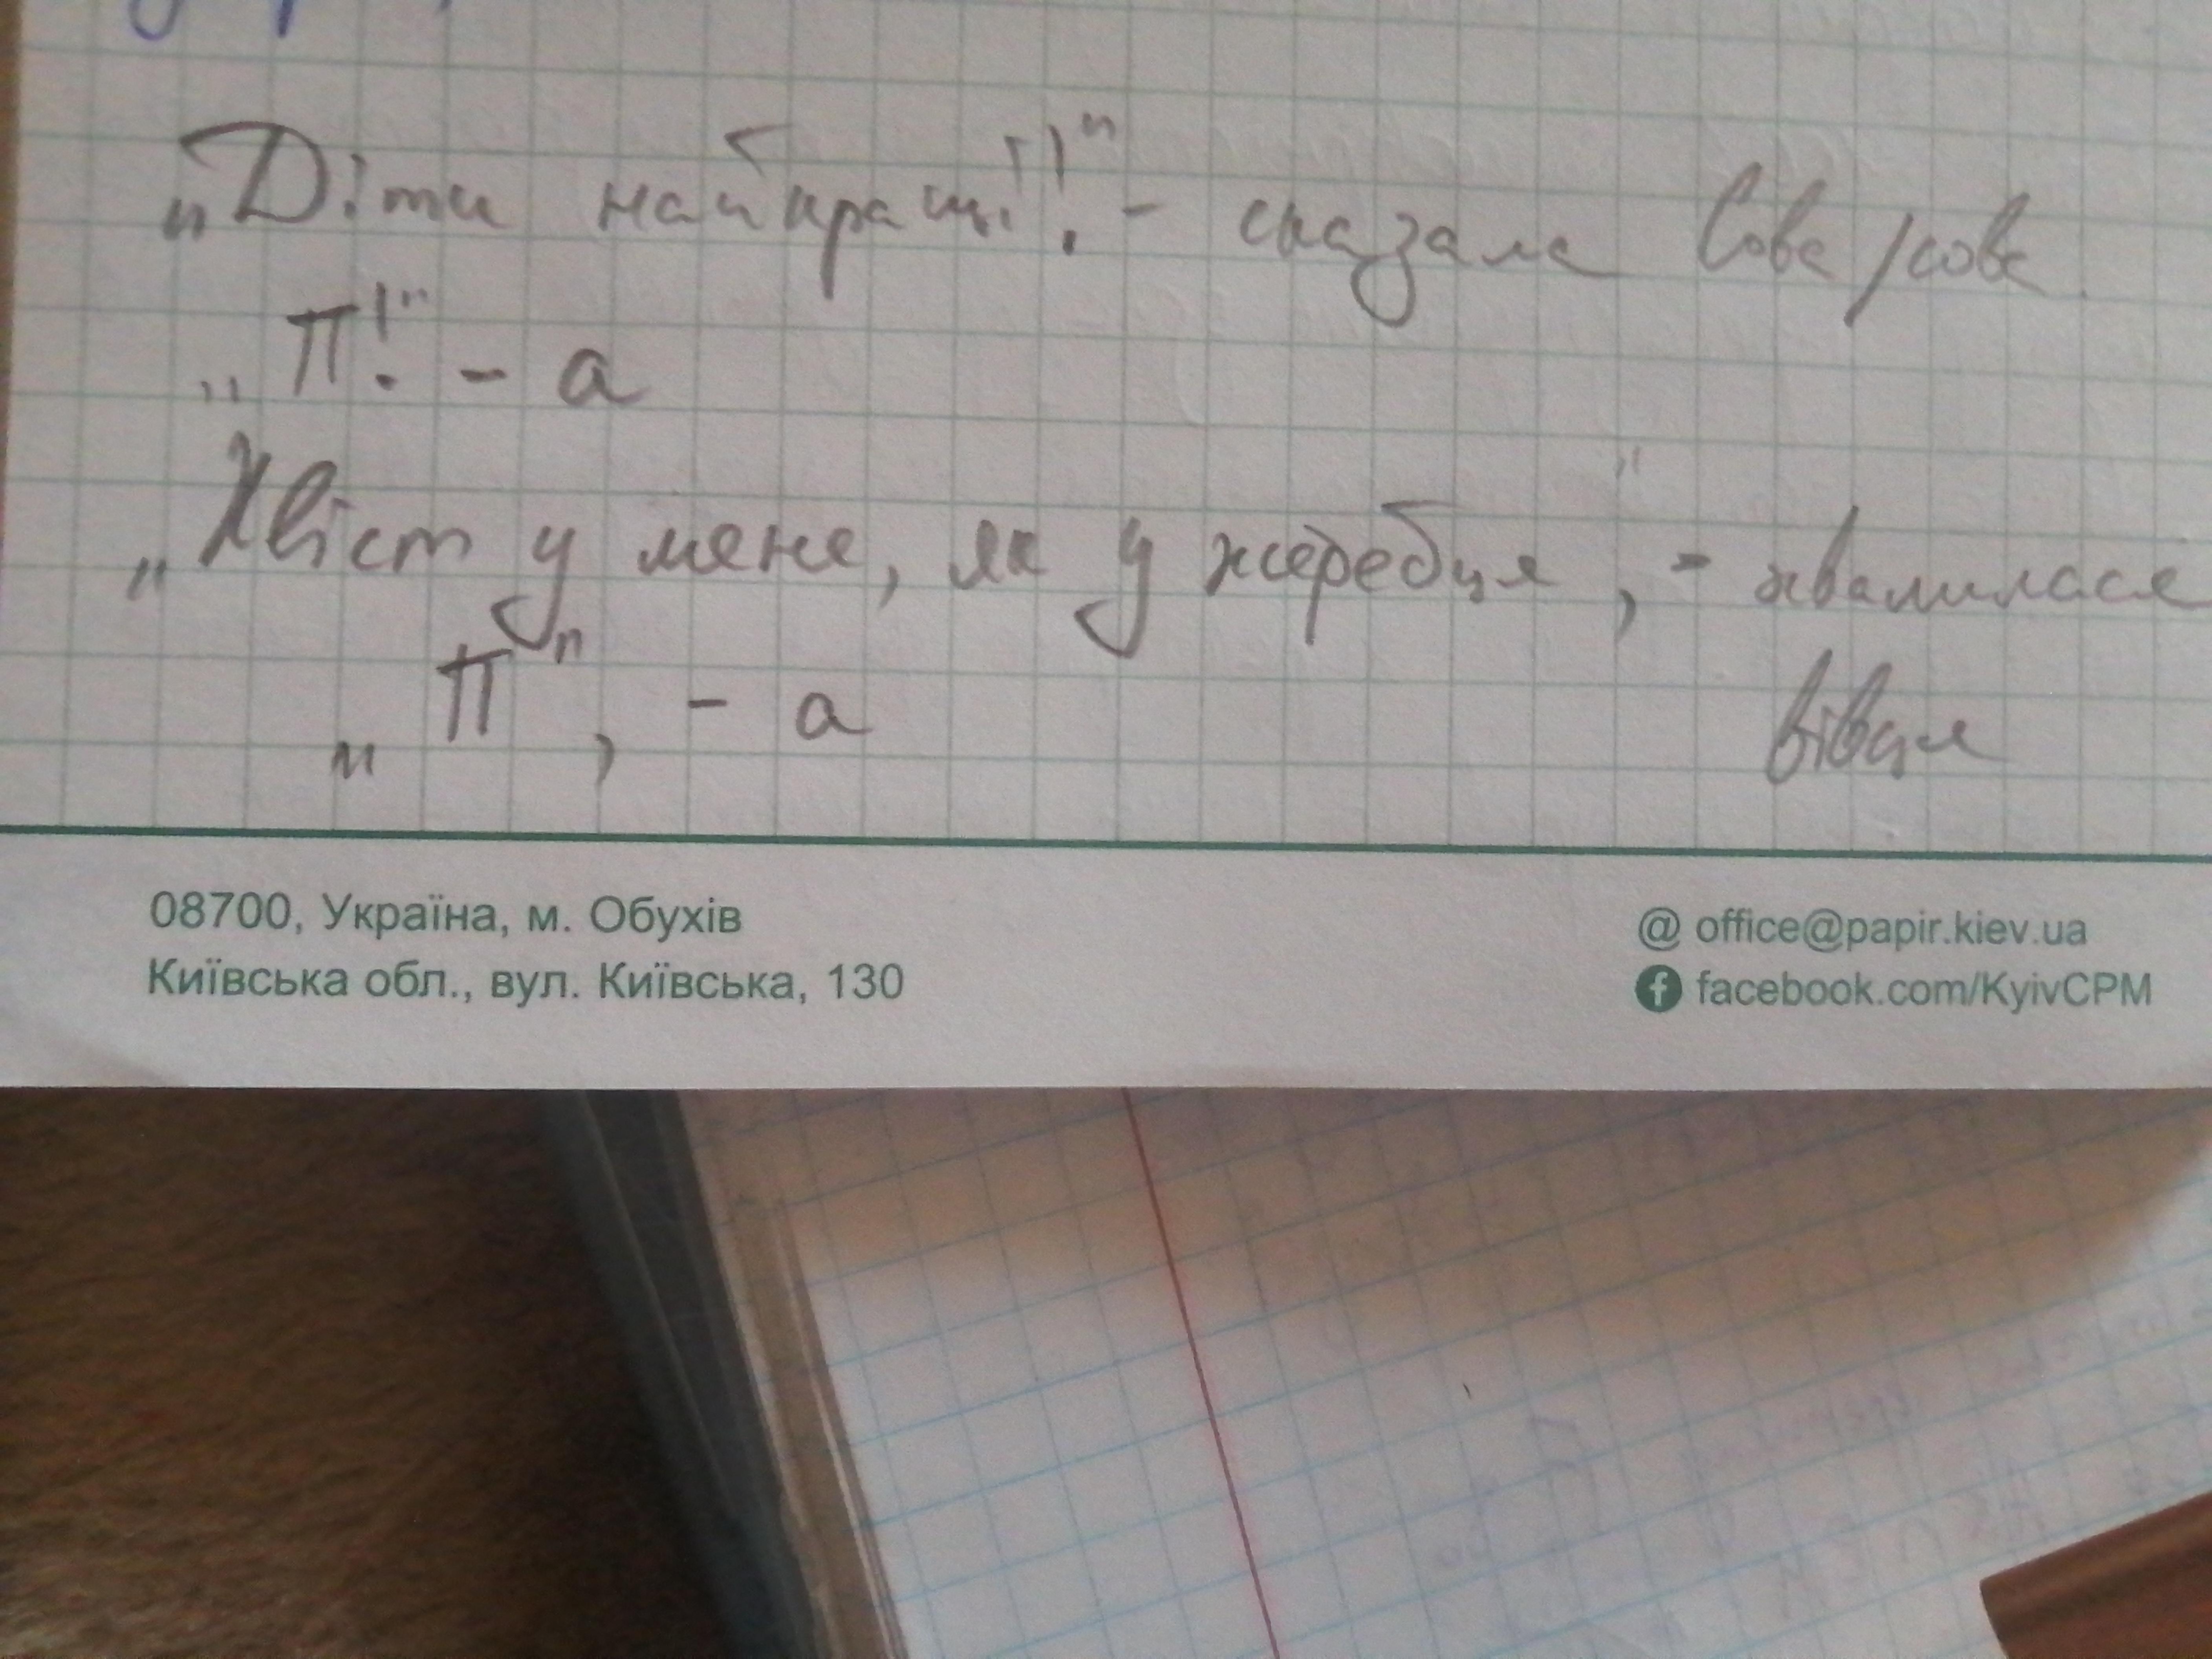 „Діти найкращі!" - сказала Сова/сова
„П!" - а
„Хвіст у мене, як у жеребця", - хвалилася
вівця
„П", - а
08700, Україна, м. Обухів
Київська обл., вул. Київська, 130
@ office@papir.kiev.ua
facebook.com/KyivCPM